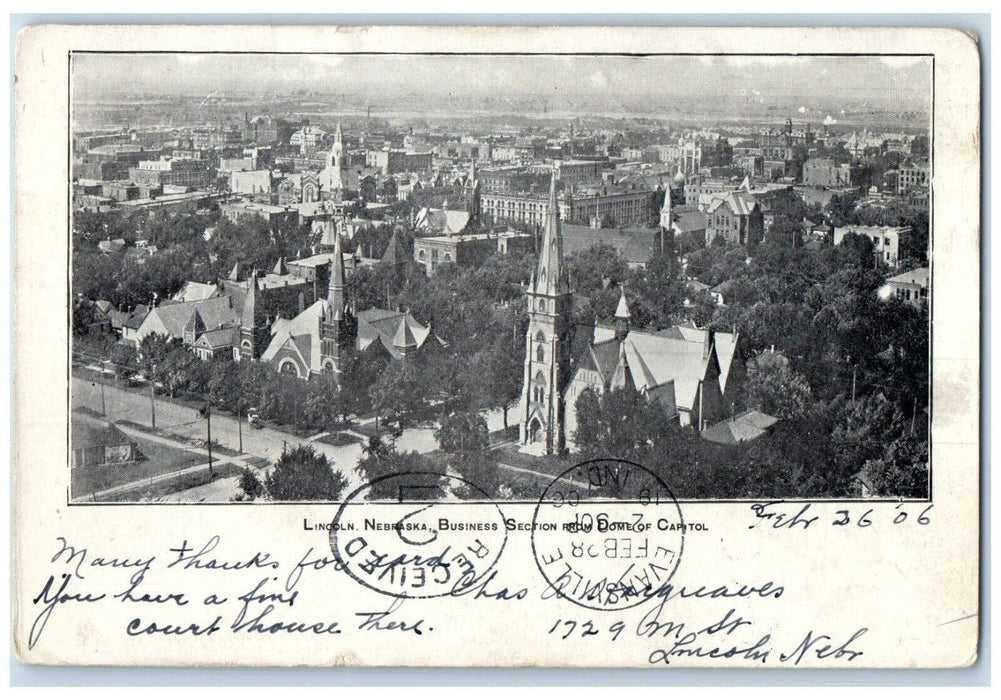 Lincoln, Nebraska, Business Section from Dome of Capitol
Feb 26 '06
Many thanks for card
You have a fine
court house there.
Chas A Hargreaves
1729 M st
Lincoln Nebr
RECEIVED
EVANSVILLE
FEB 28
IND